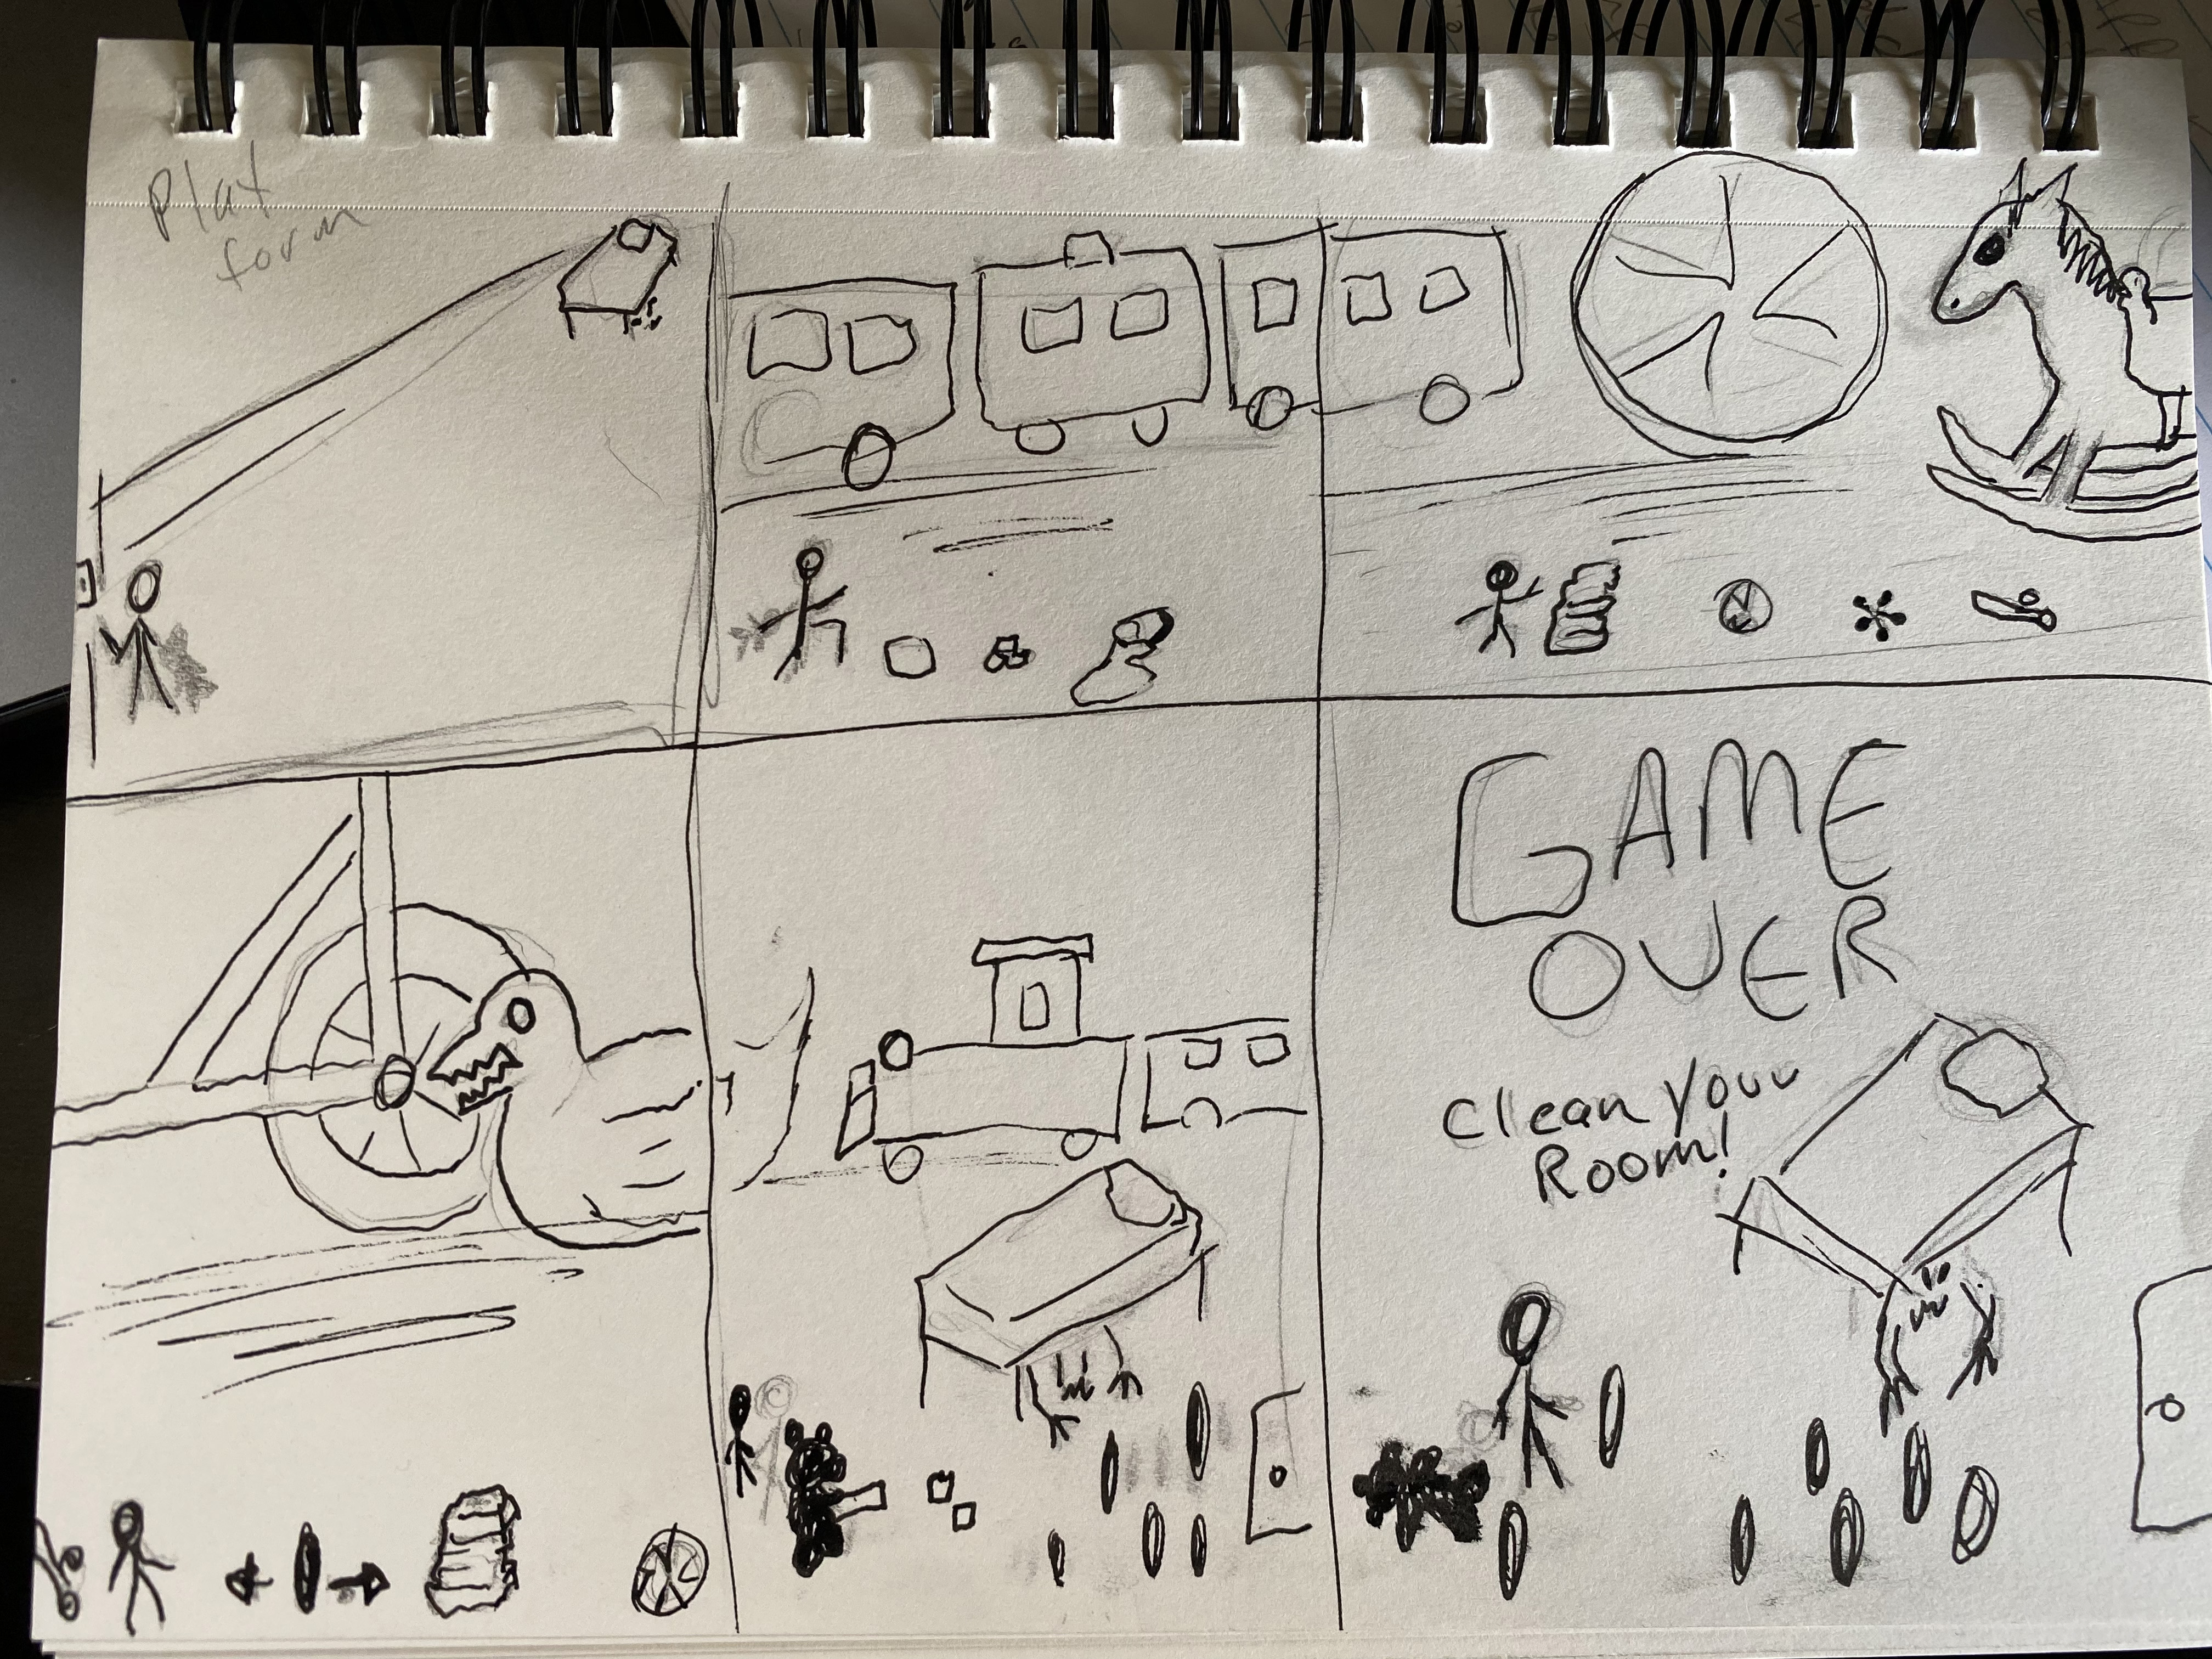 Plat
form
GAME
OVER
Clean Your
Room!